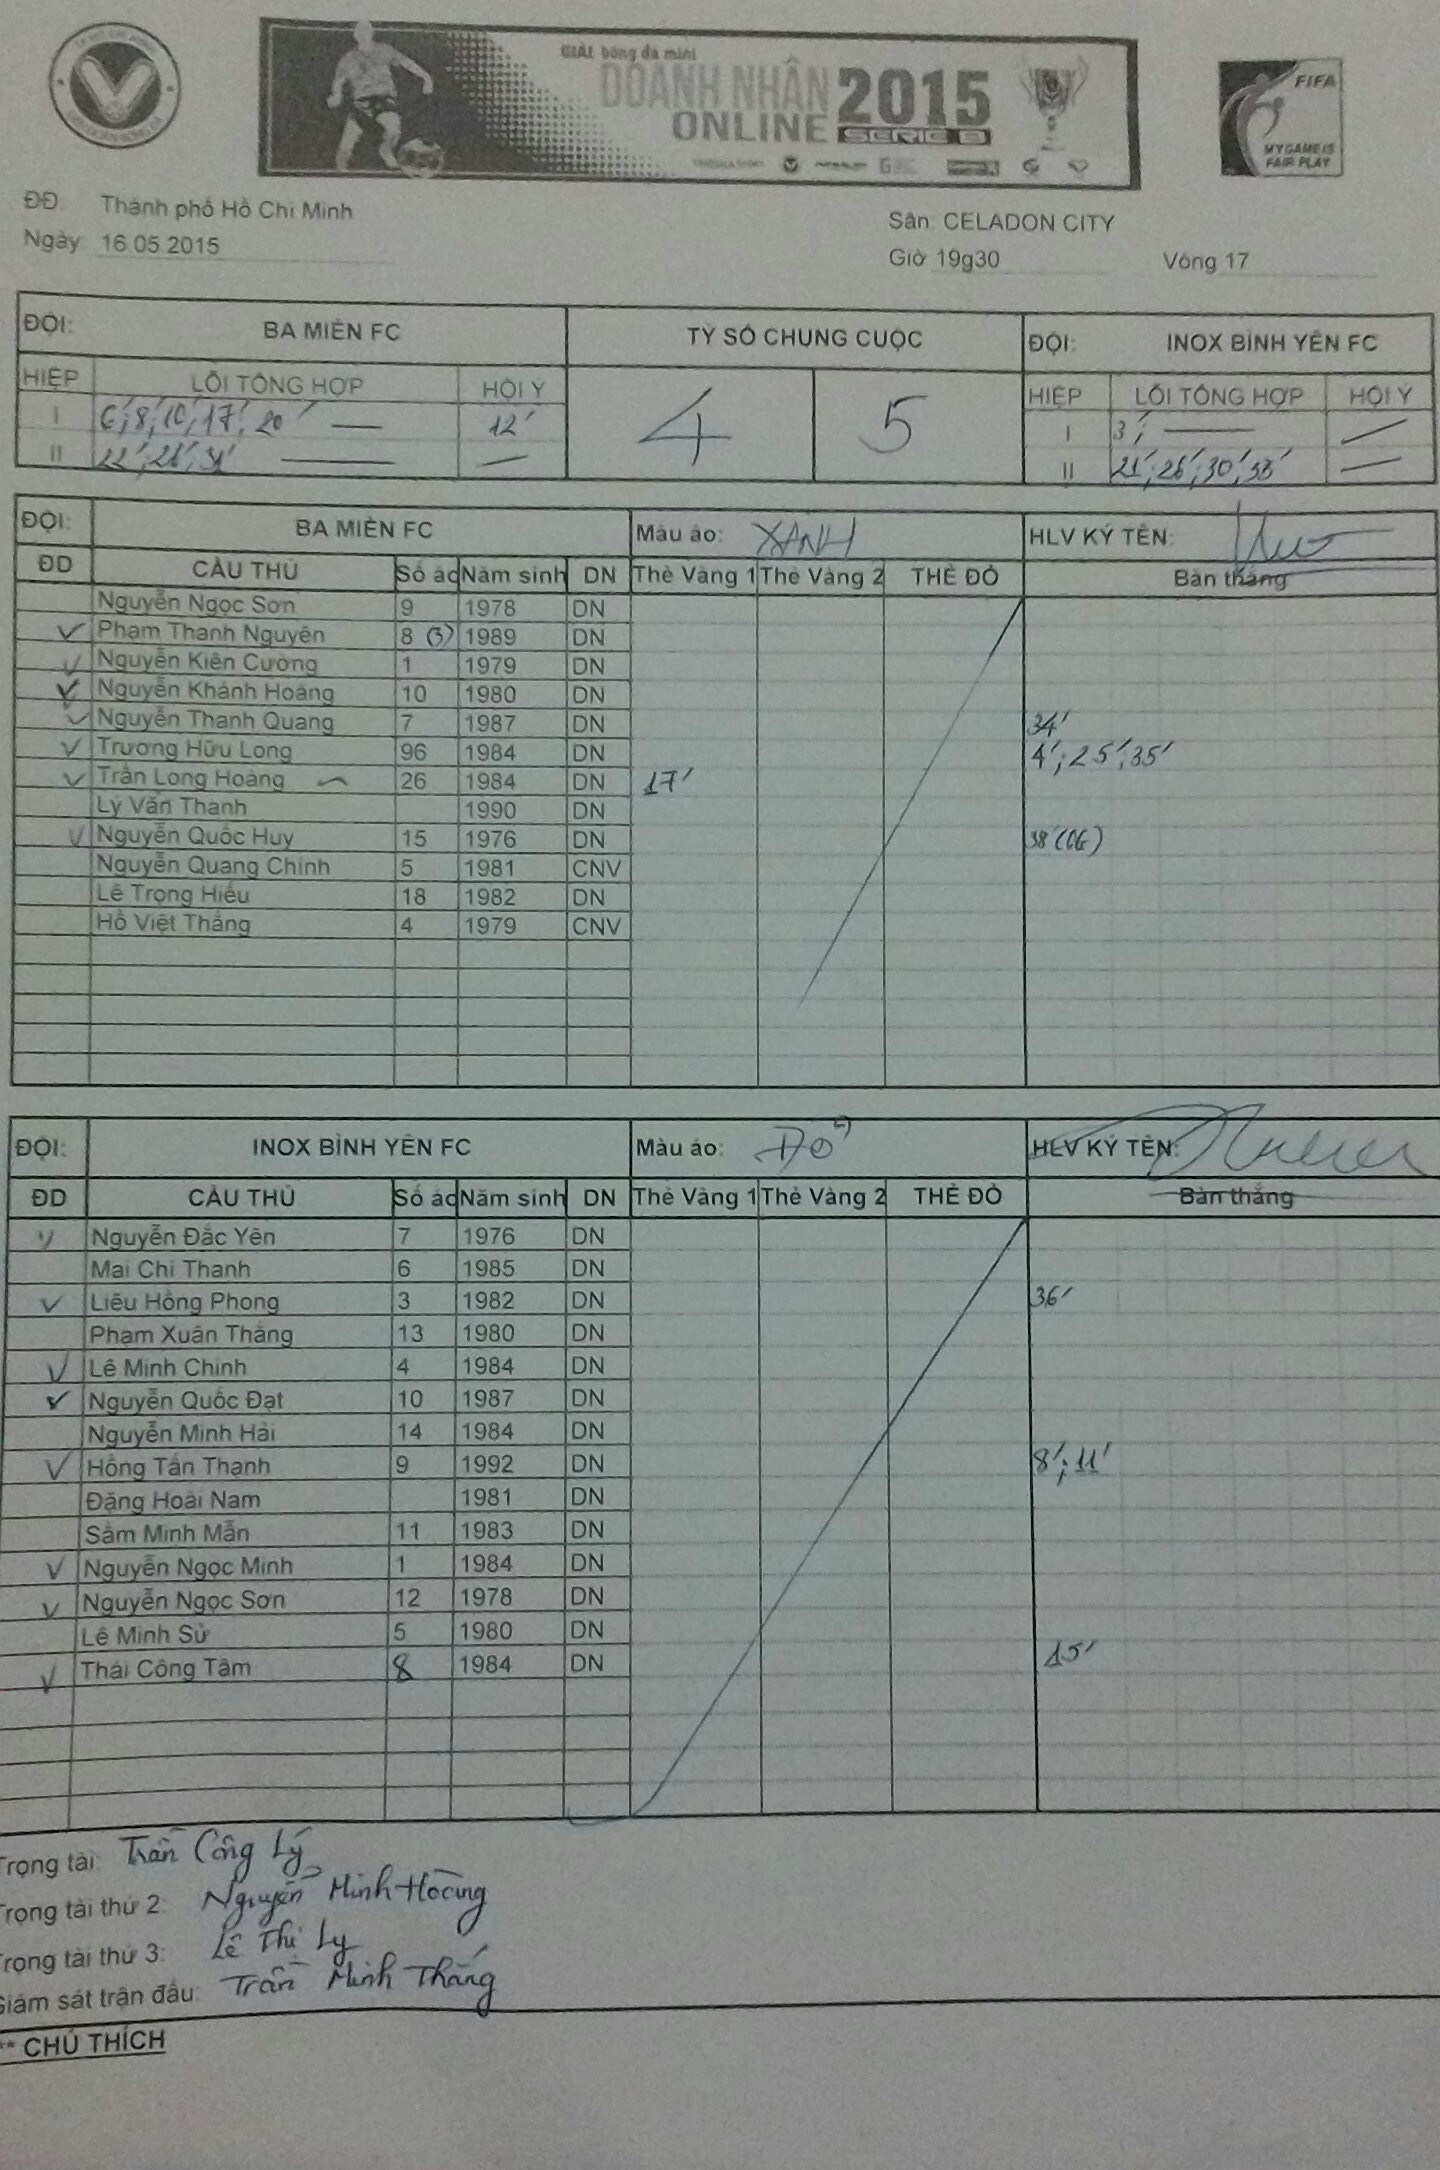 GIẢI bóng đá mini
DOANH NHÂN 2015
ONLINE SERIE B
FIFA
MY GAME IS
FAIR PLAY
ĐĐ: Thành phố Hồ Chí Minh
Sân: CELADON CITY
Ngày: 16.05.2015
Giờ 19g30 Vòng 17
ĐỘI: BA MIỀN FC TỶ SỐ CHUNG CUỘC ĐỘI: INOX BÌNH YÊN FC
HIỆP LỖI TỔNG HỢP HỘI Ý 4 5 HIỆP LỖI TỔNG HỢP HỘI Ý
I 6'; 8'; 10'; 17'; 20' — 12' I 3'; — —
II 22'; 28'; 31' — — II 21'; 26'; 30'; 33' —
ĐỘI: BA MIỀN FC Màu áo: XANH HLV KÝ TÊN:
ĐD CẦU THỦ Số áo Năm sinh DN Thẻ Vàng 1 Thẻ Vàng 2 THẺ ĐỎ Bàn thắng
Nguyễn Ngọc Sơn 9 1978 DN
✓ Phạm Thanh Nguyên 8 (3) 1989 DN
✓ Nguyễn Kiên Cường 1 1979 DN
✓ Nguyễn Khánh Hoàng 10 1980 DN
✓ Nguyễn Thanh Quang 7 1987 DN 34'
✓ Trương Hữu Long 96 1984 DN 4'; 25'; 35'
✓ Trần Long Hoàng 26 1984 DN 17'
Lý Văn Thanh 1990 DN
✓ Nguyễn Quốc Huy 15 1976 DN 38' (OG)
Nguyễn Quang Chính 5 1981 CNV
Lê Trọng Hiếu 18 1982 DN
Hồ Việt Thắng 4 1979 CNV
ĐỘI: INOX BÌNH YÊN FC Màu áo: ĐỎ HLV KÝ TÊN:
ĐD CẦU THỦ Số áo Năm sinh DN Thẻ Vàng 1 Thẻ Vàng 2 THẺ ĐỎ Bàn thắng
✓ Nguyễn Đắc Yên 7 1976 DN
Mai Chí Thanh 6 1985 DN
✓ Liêu Hồng Phong 3 1982 DN 36'
Phạm Xuân Thắng 13 1980 DN
✓ Lê Minh Chinh 4 1984 DN
✓ Nguyễn Quốc Đạt 10 1987 DN
Nguyễn Minh Hải 14 1984 DN
✓ Hồng Tấn Thạnh 9 1992 DN 8'; 11'
Đặng Hoài Nam 1981 DN
Sầm Minh Mẫn 11 1983 DN
✓ Nguyễn Ngọc Minh 1 1984 DN
✓ Nguyễn Ngọc Sơn 12 1978 DN
Lê Minh Sử 5 1980 DN
✓ Thái Công Tâm 8 1984 DN 15'
Trọng tài: Trần Công Lý
Trọng tài thứ 2: Nguyễn Minh Hoàng
Trọng tài thứ 3: Lê Thị Ly
Giám sát trận đấu: Trần Minh Thắng
** CHÚ THÍCH